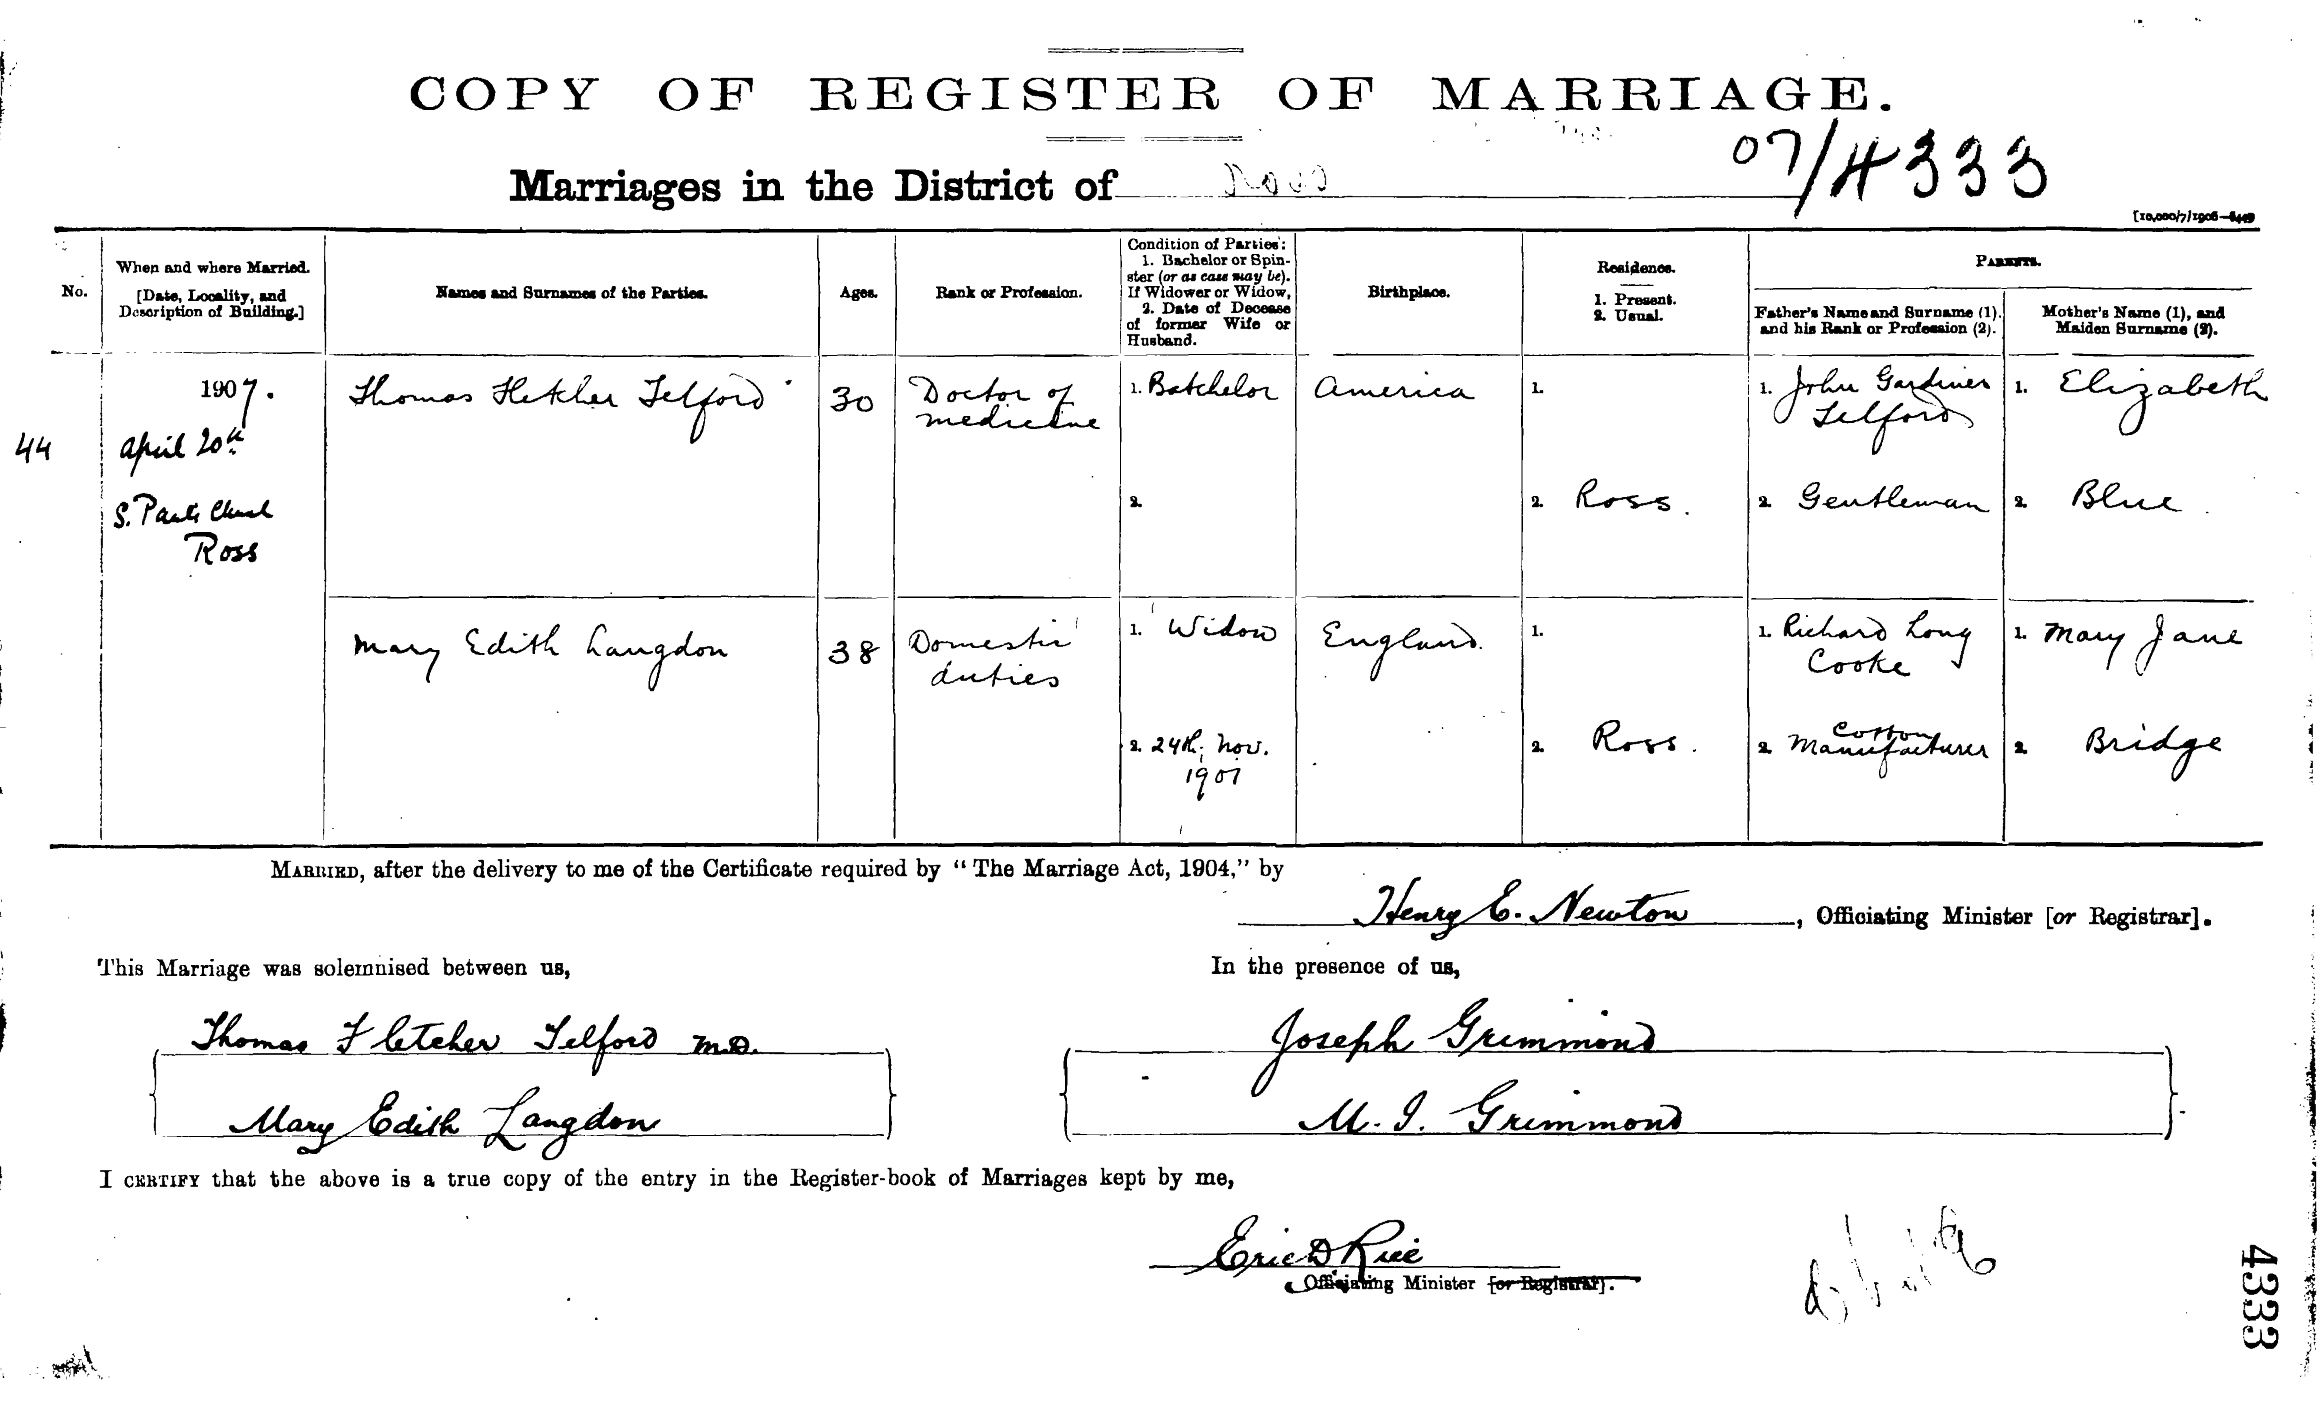 COPY OF REGISTER OF MARRIAGE.
Marriages in the District of Ross
07/4333
[10,000/7/1906—
No.
When and where Married.
[Date, Locality, and
Description of Building.]
Names and Surnames of the Parties.
Ages.
Rank or Profession.
Condition of Parties:
1. Bachelor or Spin-
ster (or as case may be).
If Widower or Widow,
2. Date of Decease
of former Wife or
Husband.
Birthplace.
Residence.
1. Present.
2. Usual.
PARENTS.
Father's Name and Surname (1).
and his Rank or Profession (2).
Mother's Name (1), and
Maiden Surname (2).
44
1907.
April 20th
S. Pauls Church
Ross
Thomas Fletcher Telford
30
Doctor of
medicine
1. Batchelor
2.
America
1.
2. Ross.
1. John Gardiner
Telford
2. Gentleman
1. Elizabeth
2. Blue
Mary Edith Langdon
38
Domestic
duties
1. Widow
2. 24th. Nov.
1901
England.
1.
2. Ross.
1. Richard Long
Cooke
2. Cotton
Manufacturer
1. Mary Jane
2. Bridge
MARRIED, after the delivery to me of the Certificate required by "The Marriage Act, 1904," by
Henry E. Newton, Officiating Minister [or Registrar].
This Marriage was solemnised between us,
In the presence of us,
Thomas Fletcher Telford M.D.
Mary Edith Langdon
Joseph Grimmond
M. I. Grimmond
I CERTIFY that the above is a true copy of the entry in the Register-book of Marriages kept by me,
Eric D Rice
Officiating Minister [or Registrar].
4333